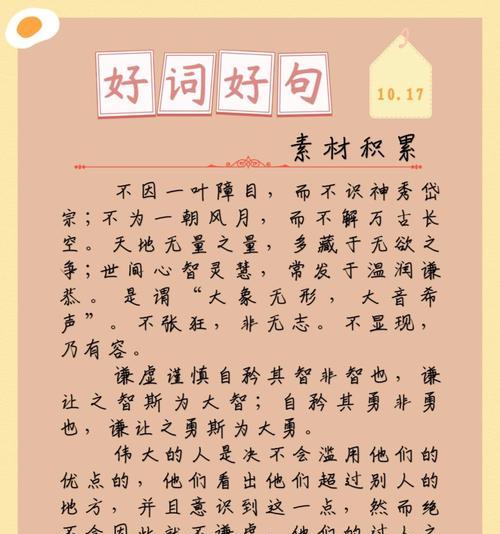 好词好句
10.17
素材积累
不因一叶障目，而不识神秀岱
宗；不为一朝风月，而不解万古长
空。天地无量之量，多藏于无欲之
争；世间心智灵慧，常发于温润谦
恭。是谓“大象无形，大音希
声”。不张狂，非无志。不显现，
乃有容。
谦虚谨慎自矜其智非智也，谦
让之智斯为大智；自矜其勇非勇
也，谦让之勇斯为大勇。
伟大的人是决不会滥用他们的
优点的，他们看出他们超过别人的
地方，并且意识到这一点，然而绝
不会因此就不谦虚。他们的过人之